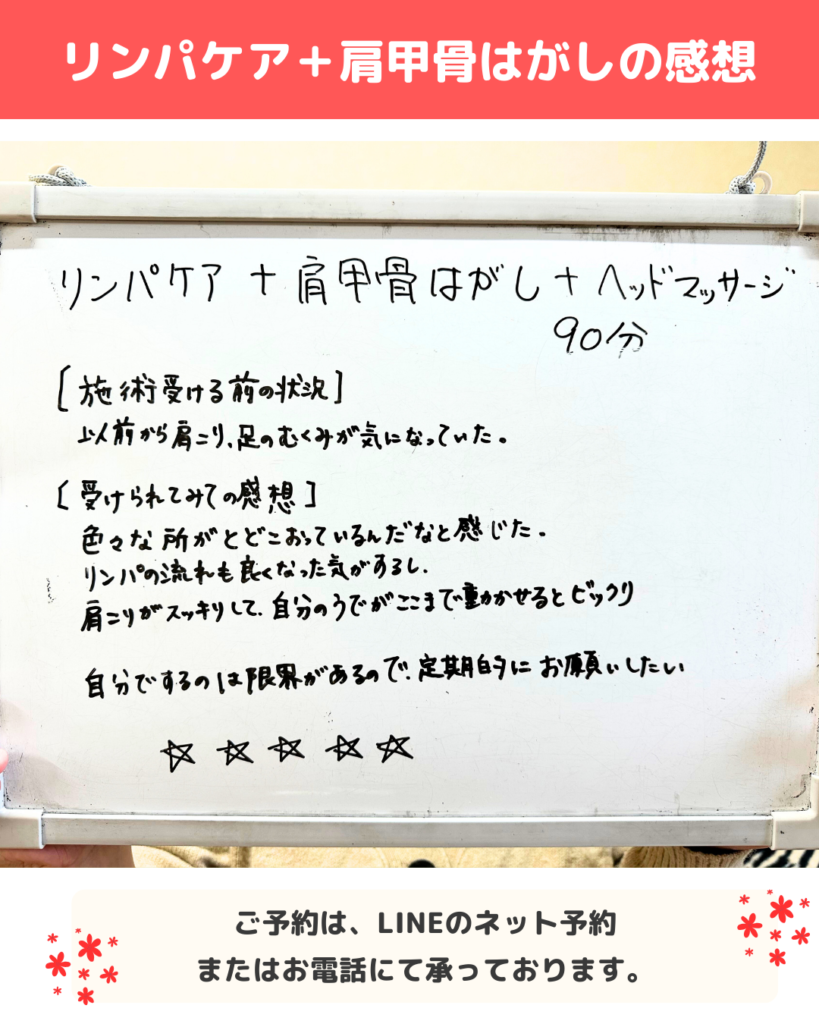 リンパケア＋肩甲骨はがしの感想
リンパケア + 肩甲骨はがし + ヘッドマッサージ
90分
[施術受ける前の状況]
以前から肩こり、足のむくみが気になっていた。
[受けられてみての感想]
色々な所がとどこおっているんだなと感じた。
リンパの流れも良くなった気がするし、
肩こりがスッキリして、自分のうでがここまで動かせるとビックリ
自分でするのは限界があるので、定期的にお願いしたい
☆☆☆☆☆
ご予約は、LINEのネット予約
またはお電話にて承っております。